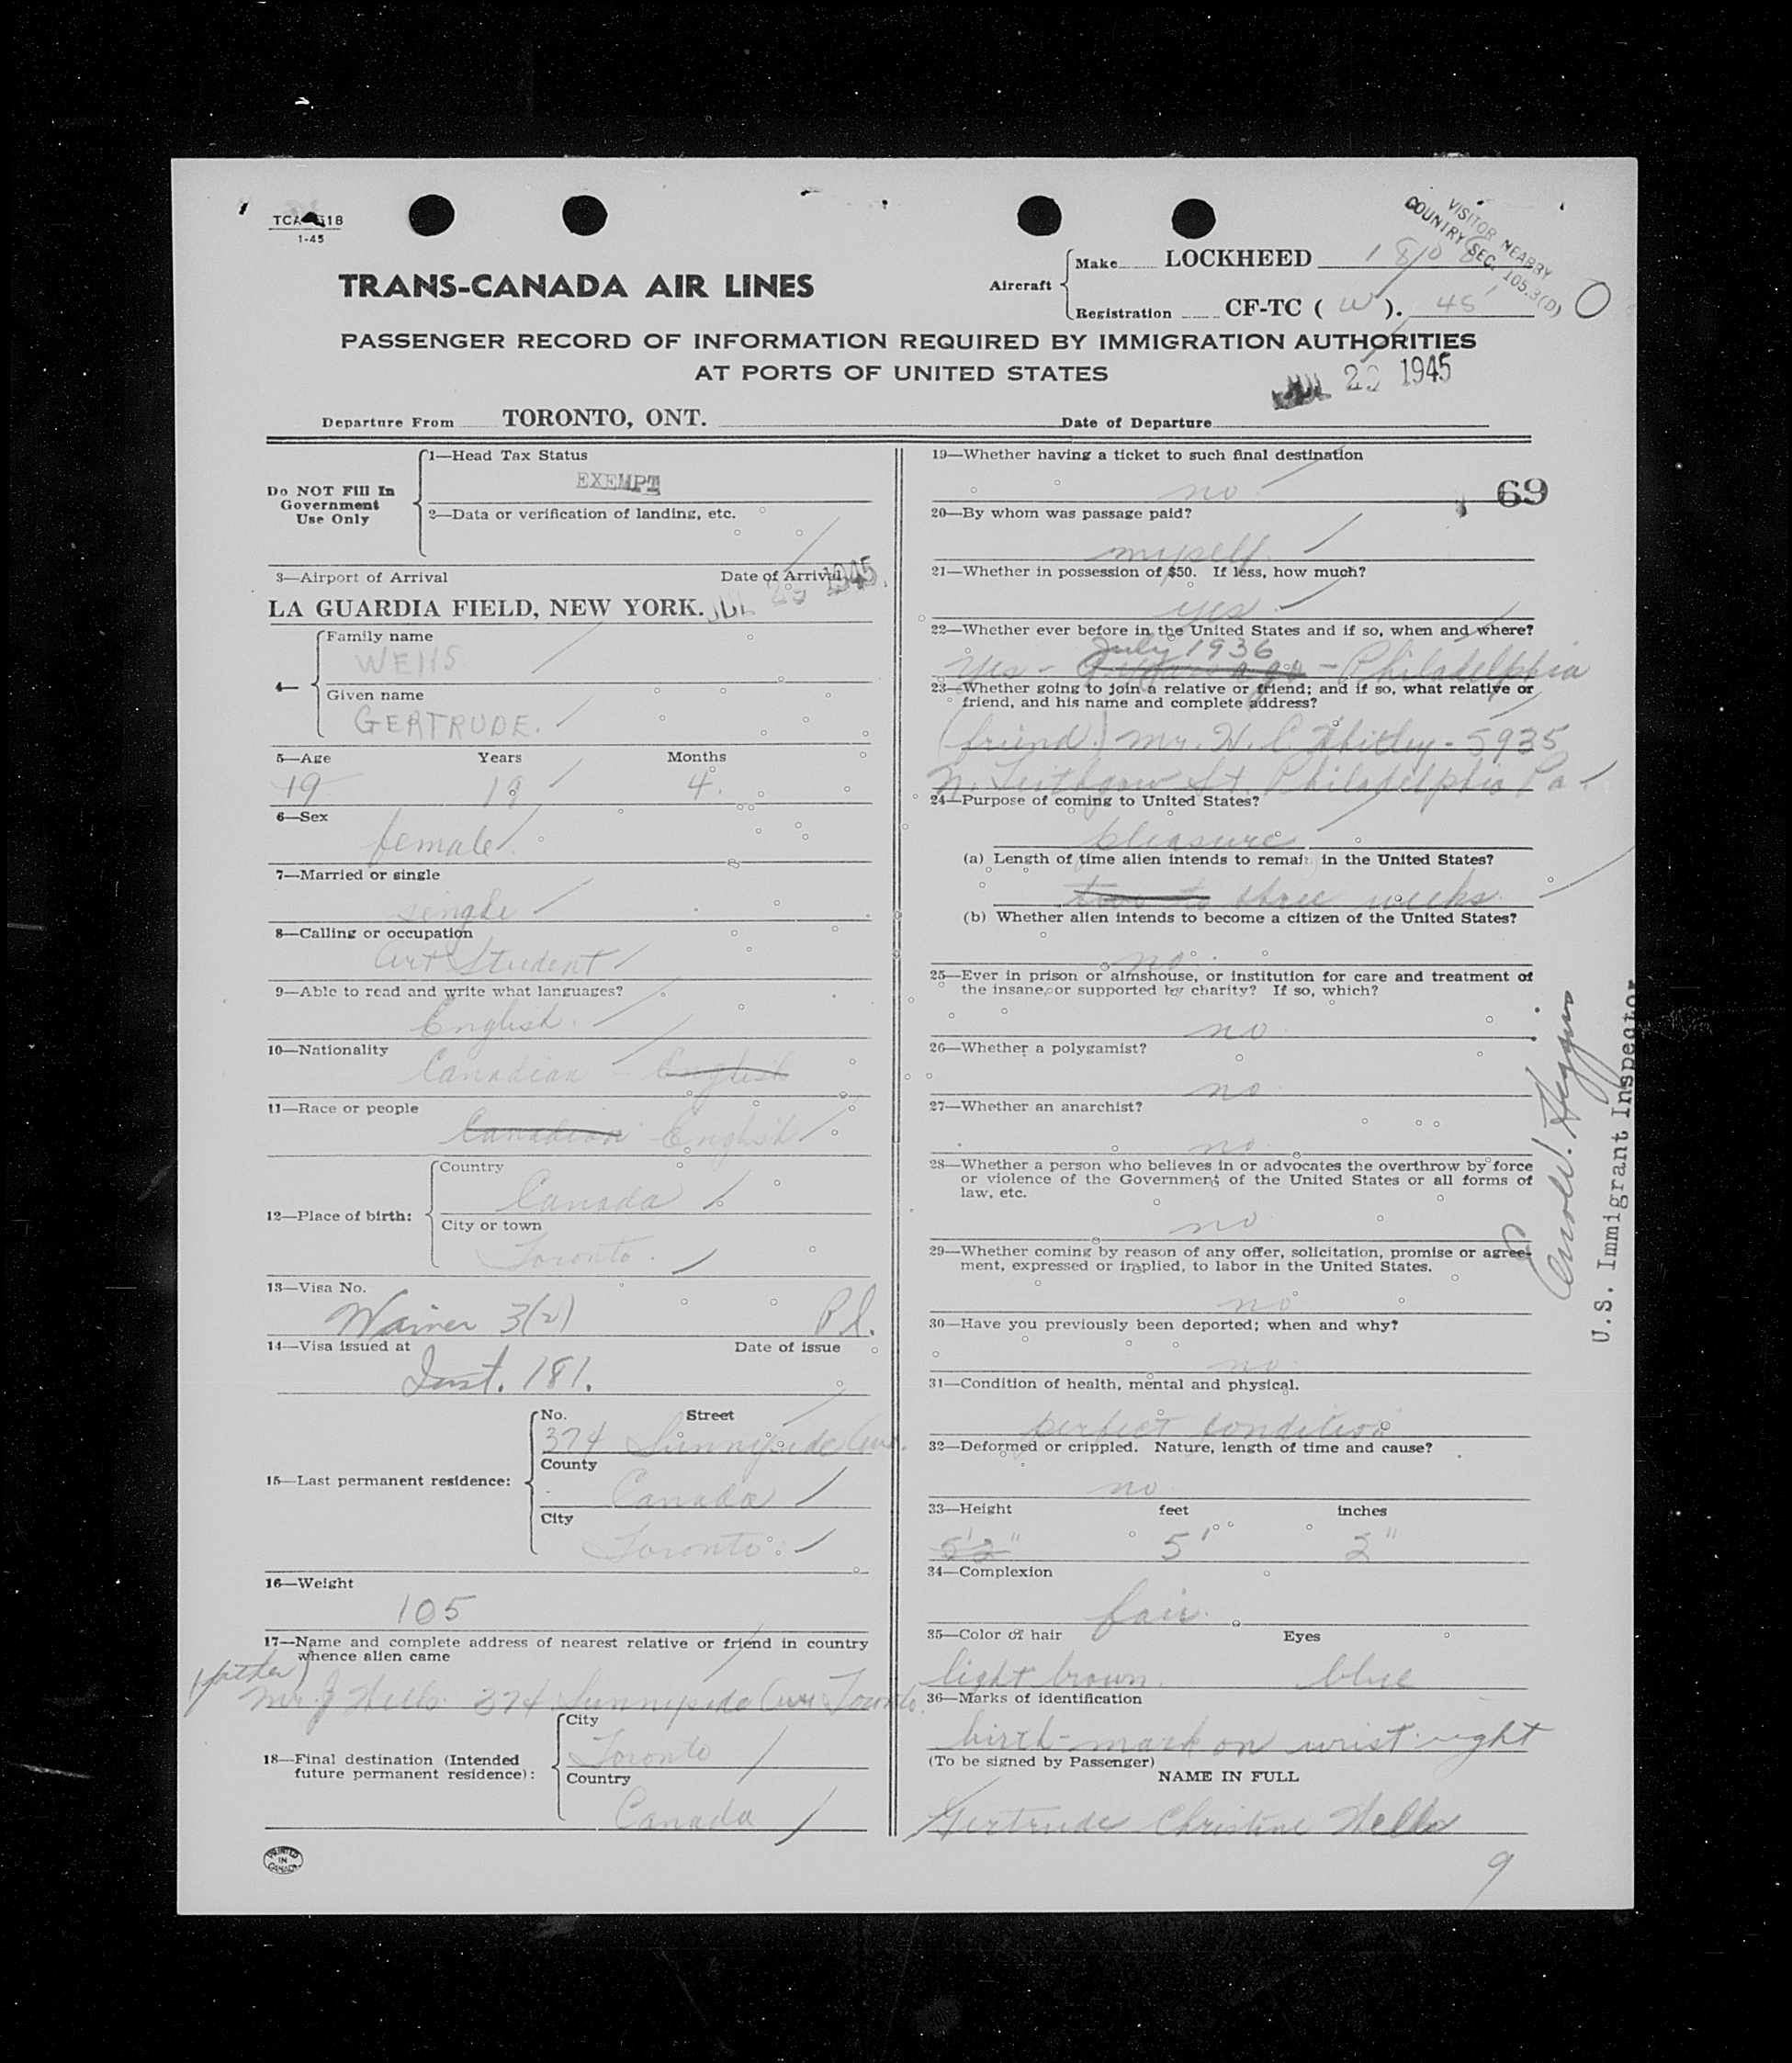 TCA 618
1-45
VISITOR NEARBY
COUNTRY SEC. 105.3(D)
TRANS-CANADA AIR LINES
Aircraft
Make LOCKHEED 1808
Registration CF-TC ( W ). 45
PASSENGER RECORD OF INFORMATION REQUIRED BY IMMIGRATION AUTHORITIES
AT PORTS OF UNITED STATES
JUL 1945
Departure From TORONTO, ONT. Date of Departure
Do NOT Fill In
Government
Use Only
1—Head Tax Status
EXEMPT
2—Data or verification of landing, etc.
3—Airport of Arrival Date of Arrival
LA GUARDIA FIELD, NEW YORK. JUL 1945
4—
Family name
WELLS
Given name
GERTRUDE.
5—Age Years Months
19 19 4.
6—Sex
female
7—Married or single
single
8—Calling or occupation
Art Student
9—Able to read and write what languages?
English.
10—Nationality
Canadian - English
11—Race or people
Canadian English
12—Place of birth:
Country
Canada
City or town
Toronto.
13—Visa No.
Waiver 3(2) P.I.
14—Visa issued at Date of issue
Inst. 181.
15—Last permanent residence:
No. Street
374 Sunnyside Ave.
County
Canada
City
Toronto.
16—Weight
105
17—Name and complete address of nearest relative or friend in country
whence alien came
(father)
Mr. J Wells. 374 Sunnyside Ave Toronto.
18—Final destination (Intended
future permanent residence):
City
Toronto
Country
Canada
PRINTED
IN
CANADA
19—Whether having a ticket to such final destination
no
69
20—By whom was passage paid?
myself.
21—Whether in possession of $50. If less, how much?
yes.
22—Whether ever before in the United States and if so, when and where?
July 1936
Yes - years ago - Philadelphia
23—Whether going to join a relative or friend; and if so, what relative or
friend, and his name and complete address?
(friend.) Mr. H. C Whitley - 5935
N. Leithgow St. Philadelphia Pa.
24—Purpose of coming to United States?
pleasure
(a) Length of time alien intends to remain in the United States?
two to three weeks.
(b) Whether alien intends to become a citizen of the United States?
no.
25—Ever in prison or almshouse, or institution for care and treatment of
the insane, or supported by charity? If so, which?
no
26—Whether a polygamist?
no
27—Whether an anarchist?
no
28—Whether a person who believes in or advocates the overthrow by force
or violence of the Government of the United States or all forms of
law, etc.
no
29—Whether coming by reason of any offer, solicitation, promise or agree-
ment, expressed or implied, to labor in the United States.
no
30—Have you previously been deported; when and why?
no
31—Condition of health, mental and physical.
perfect condition
32—Deformed or crippled. Nature, length of time and cause?
no
33—Height feet inches
5'2" 5' 2"
34—Complexion
fair.
35—Color of hair Eyes
light brown. blue
36—Marks of identification
birth-mark on wrist right
(To be signed by Passenger)
NAME IN FULL
Gertrude Christine Wells
9
U.S. Immigrant Inspector